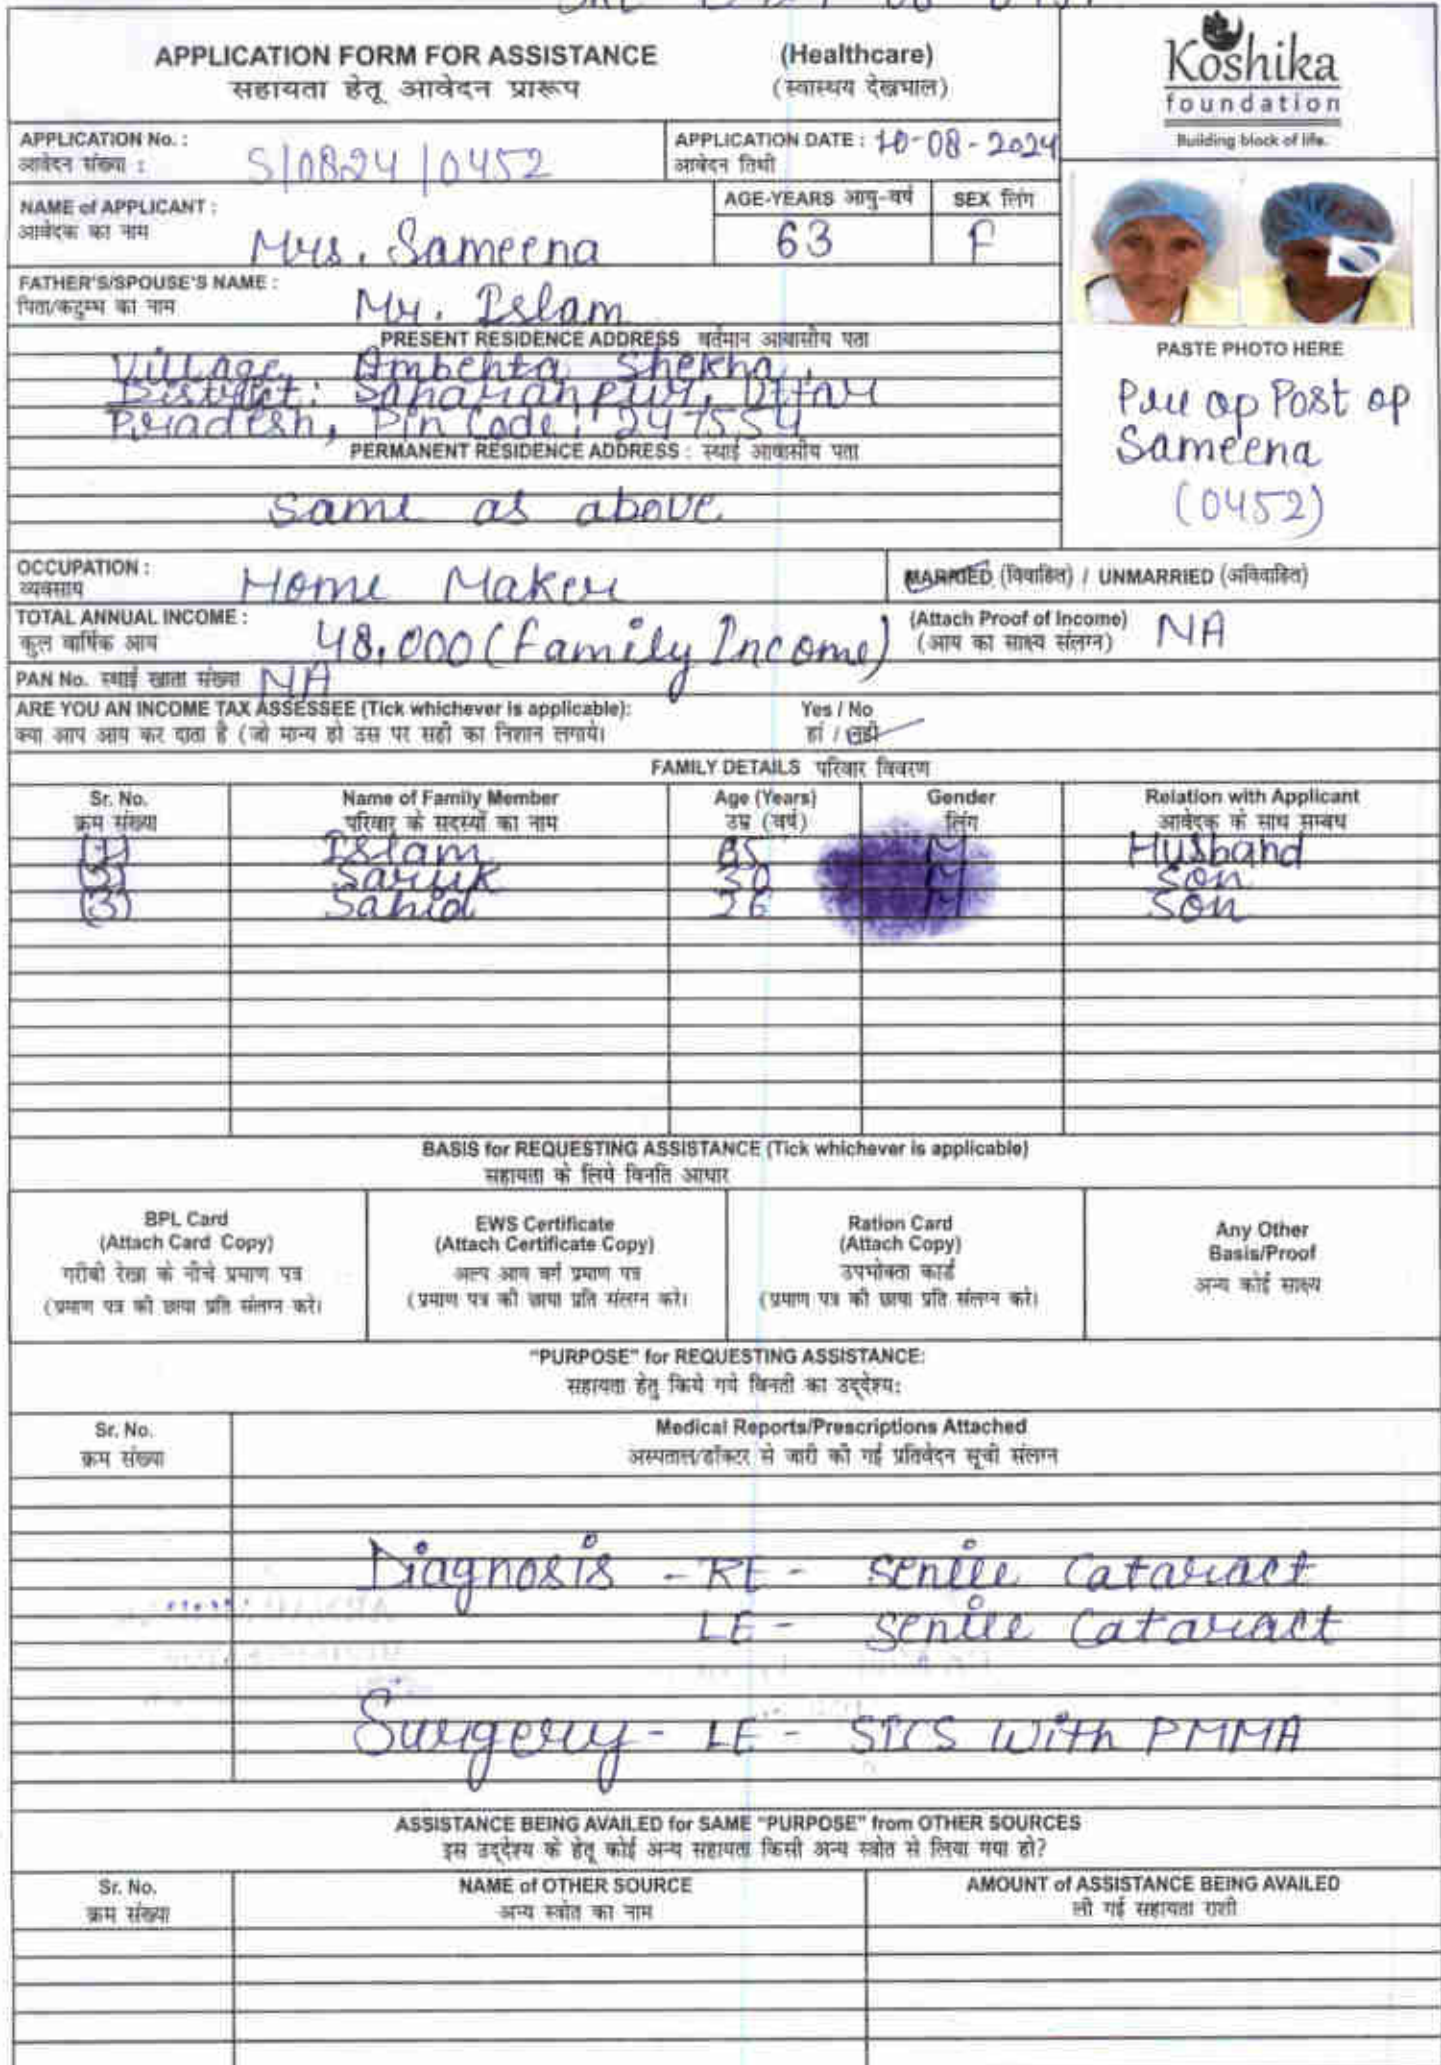 APPLICATION FORM FOR ASSISTANCE (Healthcare)
सहायता हेतू आवेदन प्रारूप (स्वास्थय देखभाल)
Koshika
foundation
Building block of life.
APPLICATION No. : S/0824/0452 APPLICATION DATE : 10-08-2024
आवेदन संख्या : आवेदन तिथी
NAME of APPLICANT : Mrs. Sameena AGE-YEARS आयु-वर्ष 63 SEX लिंग F
आवेदक का नाम
FATHER'S/SPOUSE'S NAME : Mr. Islam
पिता/कटुम्भ का नाम
PRESENT RESIDENCE ADDRESS वर्तमान आवासीय पता
Village Ambehta Shekha,
District: Saharanpur, Uttar
Pradesh, Pin Code: 247554
PERMANENT RESIDENCE ADDRESS : स्थाई आवासीय पता
Same as above
PASTE PHOTO HERE
Pre op Post op
Sameena
(0452)
OCCUPATION : Home Maker MARRIED (विवाहित) / UNMARRIED (अविवाहित)
व्यवसाय
TOTAL ANNUAL INCOME : 48,000 (Family Income) (Attach Proof of Income) NA
कुल वार्षिक आय (आय का साक्ष्य संलग्न)
PAN No. स्थाई खाता संख्या NA
ARE YOU AN INCOME TAX ASSESSEE (Tick whichever is applicable): Yes / No
क्या आप आय कर दाता है (जो मान्य हो उस पर सही का निशान लगाये। हां / नही
FAMILY DETAILS परिवार विवरण
Sr. No. Name of Family Member Age (Years) Gender Relation with Applicant
क्रम संख्या परिवार के सदस्यों का नाम उम्र (वर्ष) लिंग आवेदक के साथ सम्बध
(1) Islam 65 M Husband
Sarik 30 M Son
(3) Sahid 26 M Son
BASIS for REQUESTING ASSISTANCE (Tick whichever is applicable)
सहायता के लिये विनति आधार
BPL Card
(Attach Card Copy)
गरीबी रेखा के नीचे प्रमाण पत्र
(प्रमाण पत्र की छाया प्रति संलग्न करे।
EWS Certificate
(Attach Certificate Copy)
अल्प आय वर्ग प्रमाण पत्र
(प्रमाण पत्र की छाया प्रति संलग्न करे।
Ration Card
(Attach Copy)
उपभोक्ता कार्ड
(प्रमाण पत्र की छाया प्रति संलग्न करे।
Any Other
Basis/Proof
अन्य कोई साक्ष्य
"PURPOSE" for REQUESTING ASSISTANCE:
सहायता हेतु किये गये विनती का उद्देश्य:
Sr. No. Medical Reports/Prescriptions Attached
क्रम संख्या अस्पताल/डॉक्टर से जारी की गई प्रतिवेदन सूची संलग्न
Diagnosis - RE - Senile Cataract
LE - Senile Cataract
Surgery - LE - SICS with PMMA
ASSISTANCE BEING AVAILED for SAME "PURPOSE" from OTHER SOURCES
इस उद्देश्य के हेतू कोई अन्य सहायता किसी अन्य स्त्रोत से लिया गया हो?
Sr. No. NAME of OTHER SOURCE AMOUNT of ASSISTANCE BEING AVAILED
क्रम संख्या अन्य स्त्रोत का नाम ली गई सहायता राशी